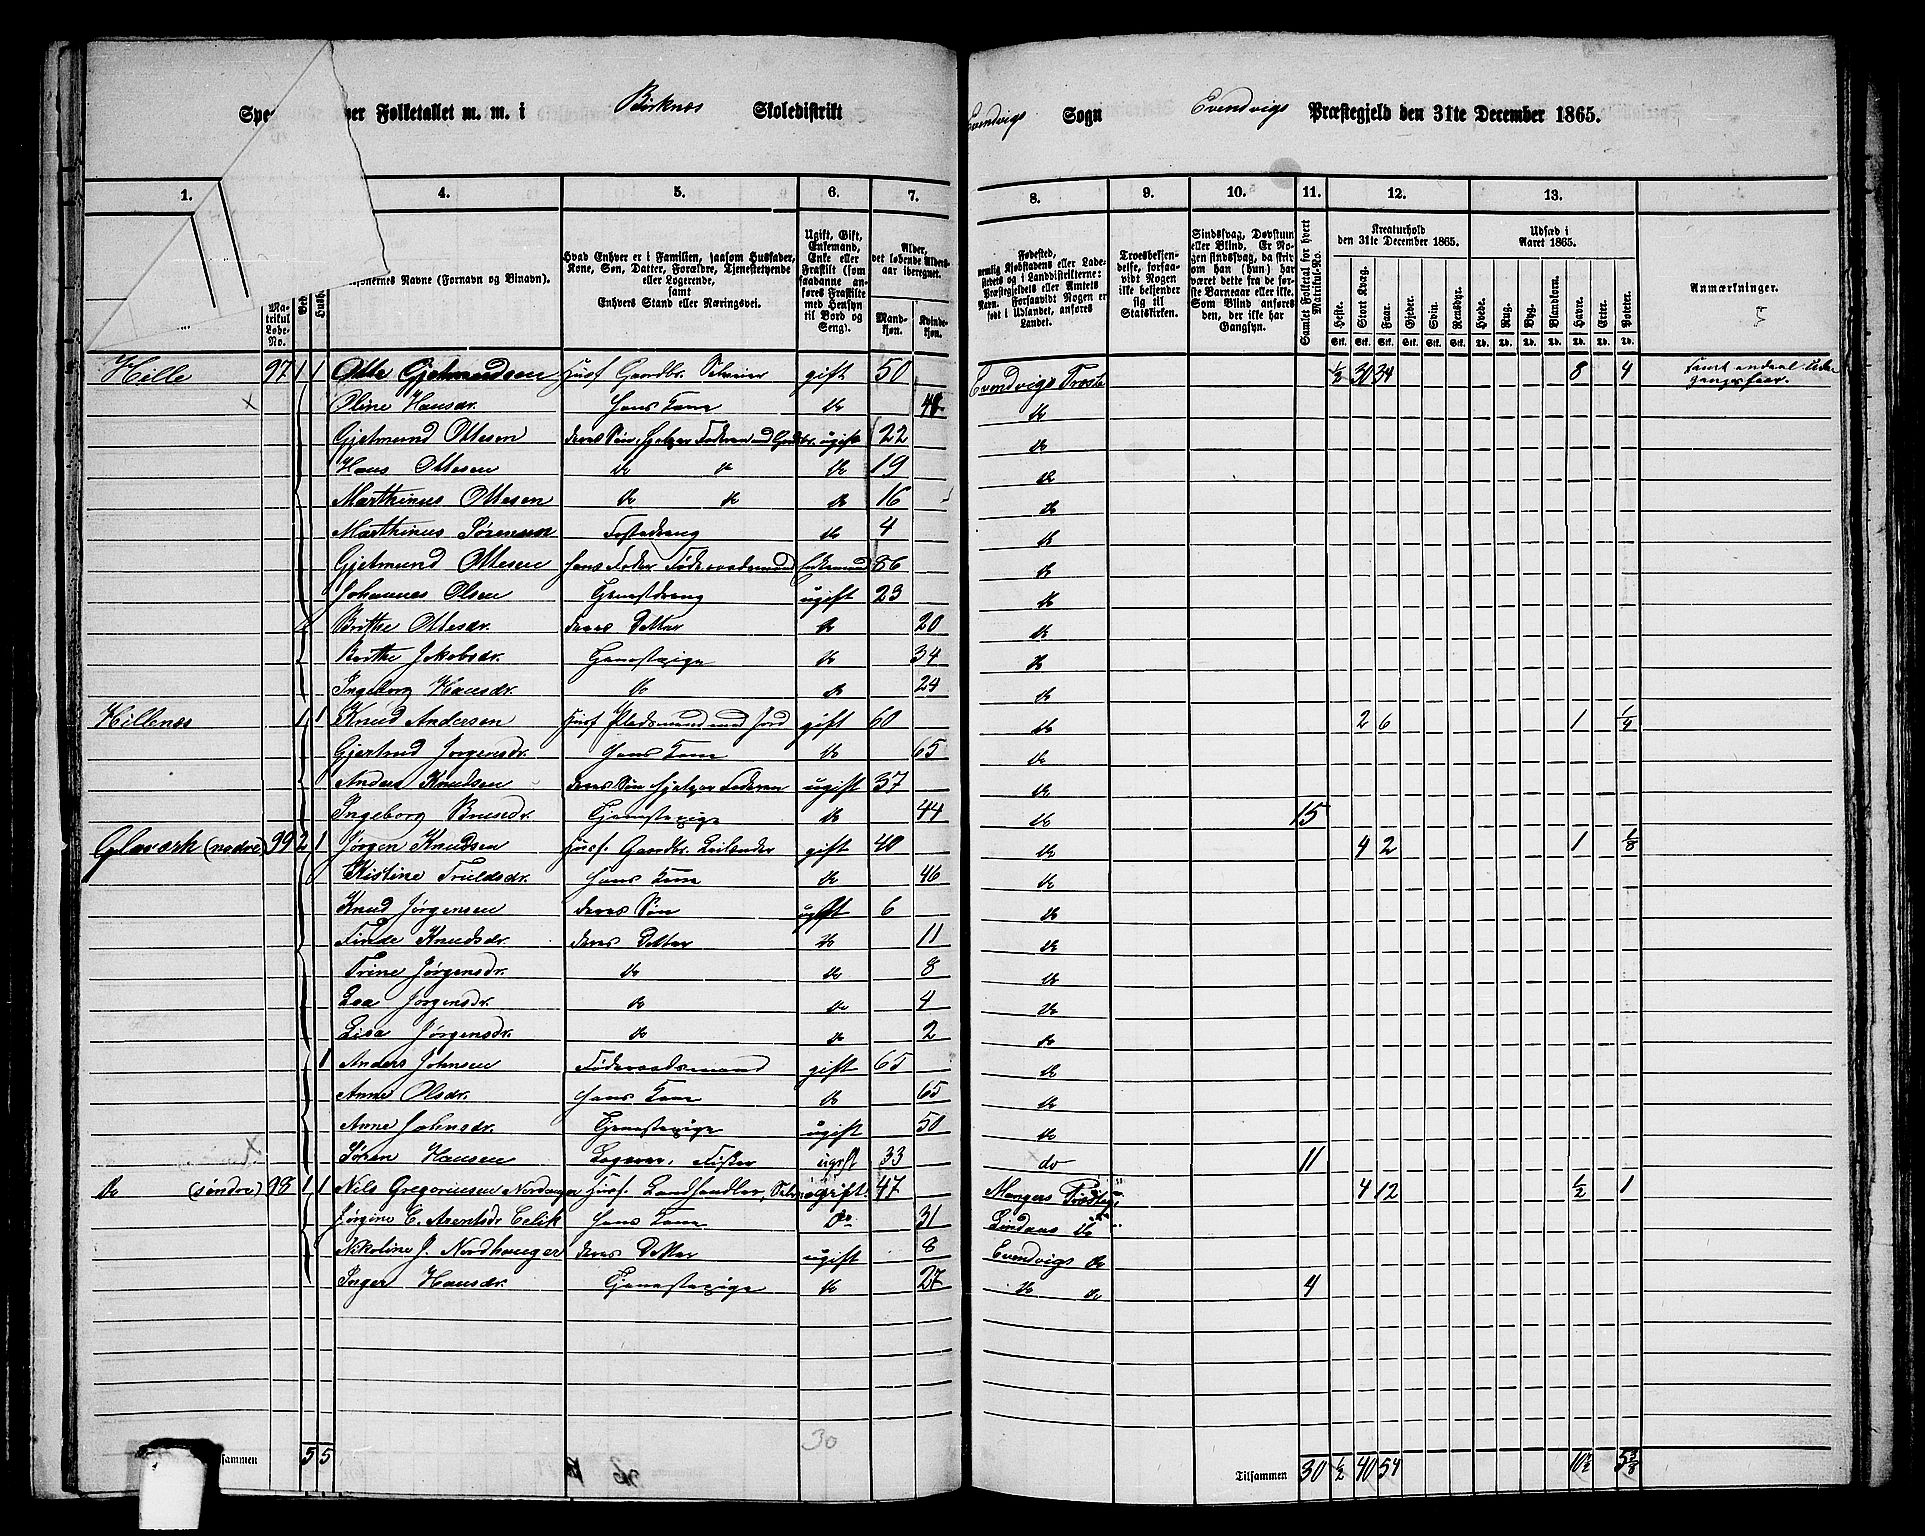 Spe ver Folketallet m. m. i Birknæs Skoledistrikt Evendvigs Sogn Evendvigs Præstegjeld den 31te December 1865.
1. 4. 5. 6. 7. 8. 9. 10. 11. 12. 13.
onernes Navne (Fornavn og Binavn).
Matrikul Løbe-No.
Hvad Enhver er i Familien, saasom Husfader, Kone, Søn, Datter, Forældre, Tjenestetyende eller Logerende, samt Enhvers Stand eller Næringsvei.
Ugift, Gift, Enkemand, Enke eller Fraskilt (som saadanne anføres Fraskilte med Hensyn til Bord og Seng).
Alder, det løbende Alders-aar iberegnet.
Mand-kjøn. Kvinde-kjøn.
Fødested, nemlig Kjøbstadens eller Ladestedets og i Landdistrikterne: Præstegjeldets eller Amtets Navn. Forsaavidt Nogen er født i Udlandet, anføres Landet.
Troesbekjendelse, forsaavidt Nogen ikke bekjender sig til Statskirken.
Sindssvag, Døvstum eller Blind. Er Nogen sindssvag, da skriv om han (hun) har været dette fra de første Barneaar eller ikke. Som Blind anføres den, der ikke har Gangsyn.
Samlet Folketal for hvert Matrikul-No.
Kreaturhold den 31te December 1865.
Heste. Stort Kvæg. Faar. Gjeder. Svin. Rensdyr.
Udsæd i Aaret 1865.
Hvede. Rug. Byg. Blandkorn. Havre. Erter. Poteter.
Stk. Stk. Stk. Stk. Stk. Stk. Td. Td. Td. Td. Td. Td. Td.
Anmærkninger.
5
Hille 97 1 1 Otte Gjetmundsen Husf Gaardbr. Selveier gift 50 Evendvigs Præste ½ 30 34 8 4
Oline Hansdr. Hans Kone do do
Gjetmund Ottesen deres Søn, hjelper Faderen ugift 22 do
Hans Ottesen do do do 19 do
Marthinus Ottesen do do do 16 do
Marthinus Sørensen Fosterdreng do 4 do
Gjetmund Ottesen Hans Fader Føderaadsmand Enkemand 86 do
Johannes Olsen Tjenestdreng ugift 23 do
Brithe Ottesdr. deres Datter do 20 do
Berthe Jakobsdr. Tjenestepige do 34 do
Ingeborg Hansdr. do do 24 do
Hillenæs 1 1 Knud Andersen Husf Pladsmand med Jord gift 60 do 2 6 1 ¼
Gjertrud Jørgensdr. Hans Kone do 65 do
Anders Knudsen deres Søn hjelper Faderen ugift 37 do
Ingeborg Tjenestepige do 44 do 15
Glaværk (nedre) 99 2 1 Jørgen Knudsen Husf. Gaardbr. Leilænder gift 40 do 4 2 1 ⅛
Kistine Hans Kone do 46 do
Knud Jørgensen deres Søn ugift 6 do
Knudsdr. deres Datter do 11 do
Trine Jørgensdr. do do 8 do
Lea Jørgensdr. do do 4 do
Lisa Jørgensdr. do do 2 do
1 Anders Johnsen Føderaadsmand gift 65 do
Anne Olsdr. Hans Kone do 65 do
Anne Johnsdr. Tjenestepige ugift 50 do
Søren Hansen Logerer, Fisker ugift 33 do 11
do (søndre) 98 1 1 Nils Gregoriussen Husf. Landhandler, gift 47 Mangers Præstegj 4 12 ½ 1
Jørgine C. Arentsdr Celik Hans Kone Do 31 Lindaas do
Nikoline J. Nordhauger deres Datter ugift 8 Evendvigs do
Inger Hansdr. Tjenestepige do 27 do do 4
30
sammen 5 5 Tilsammen 30 ½ 40 54 10½ 5⅜